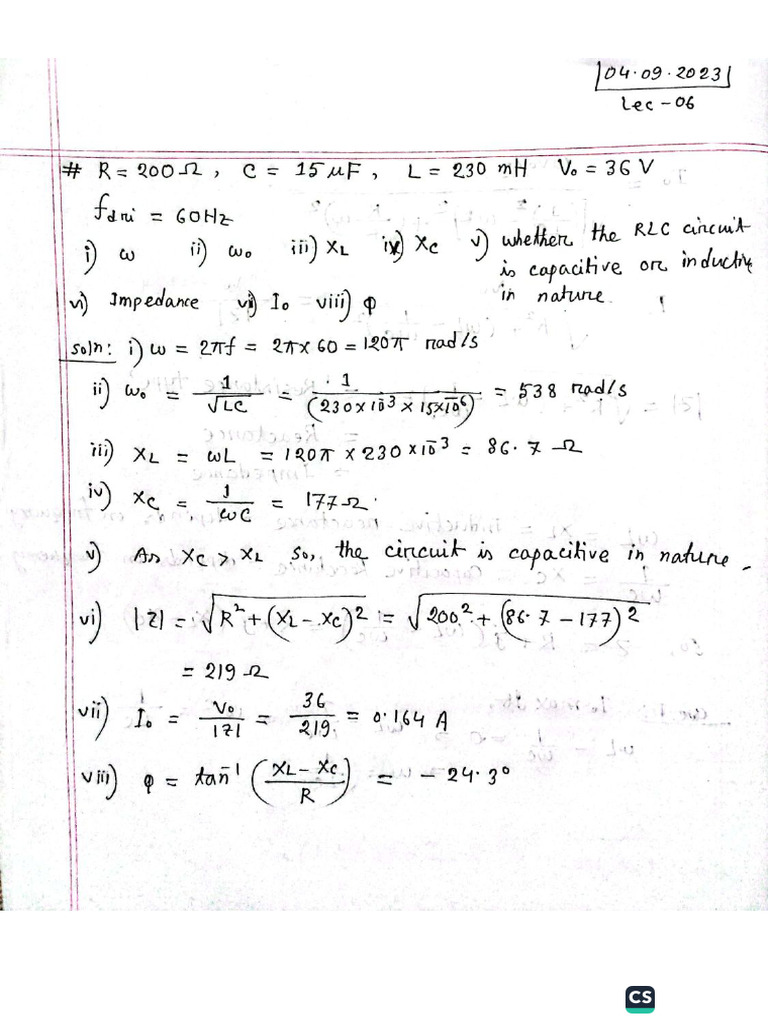 04.09.2023
Lec-06
# R = 200Ω, C = 15 μF, L = 230 mH V₀ = 36 V
f_dri = 60Hz
i) ω ii) ω₀ iii) X_L iv) X_C v) whether the RLC circuit
is capacitive or inductive
in nature.
vi) Impedance vii) I₀ viii) φ
Soln: i) ω = 2πf = 2π×60 = 120π rad/s
ii) ω₀ = 1/√LC = 1/(230×10⁻³×15×10⁻⁶) = 538 rad/s
iii) X_L = ωL = 120π × 230×10⁻³ = 86.7 Ω
iv) X_C = 1/ωC = 177Ω.
v) As X_C > X_L so, the circuit is capacitive in nature.
vi) |Z| = √(R² + (X_L - X_C)²) = √(200² + (86.7 - 177)²)
= 219 Ω
vii) I₀ = V₀/|Z| = 36/219 = 0.164 A
viii) φ = tan⁻¹ ((X_L - X_C)/R) = -24.3°
CS